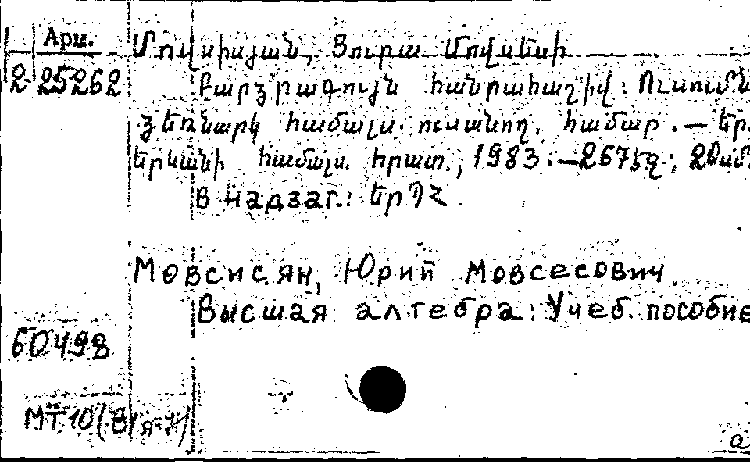 Арм.
2 25262
Մովսիսյան, Յուրա Մովսեսի
Բարձրագույն հանրահաշիվ: Ուսումն
ձեռնարկ համալս. ուսանող. համար. — Եր.
Երևանի համալս. հրատ., 1983. — 267 էջ; 20սմ
В надзаг.: ԵրՊՀ.
Мовсисян, Юрий Мовсесович.
Высшая алгебра: Учеб. пособие
60498
МТ 10
а